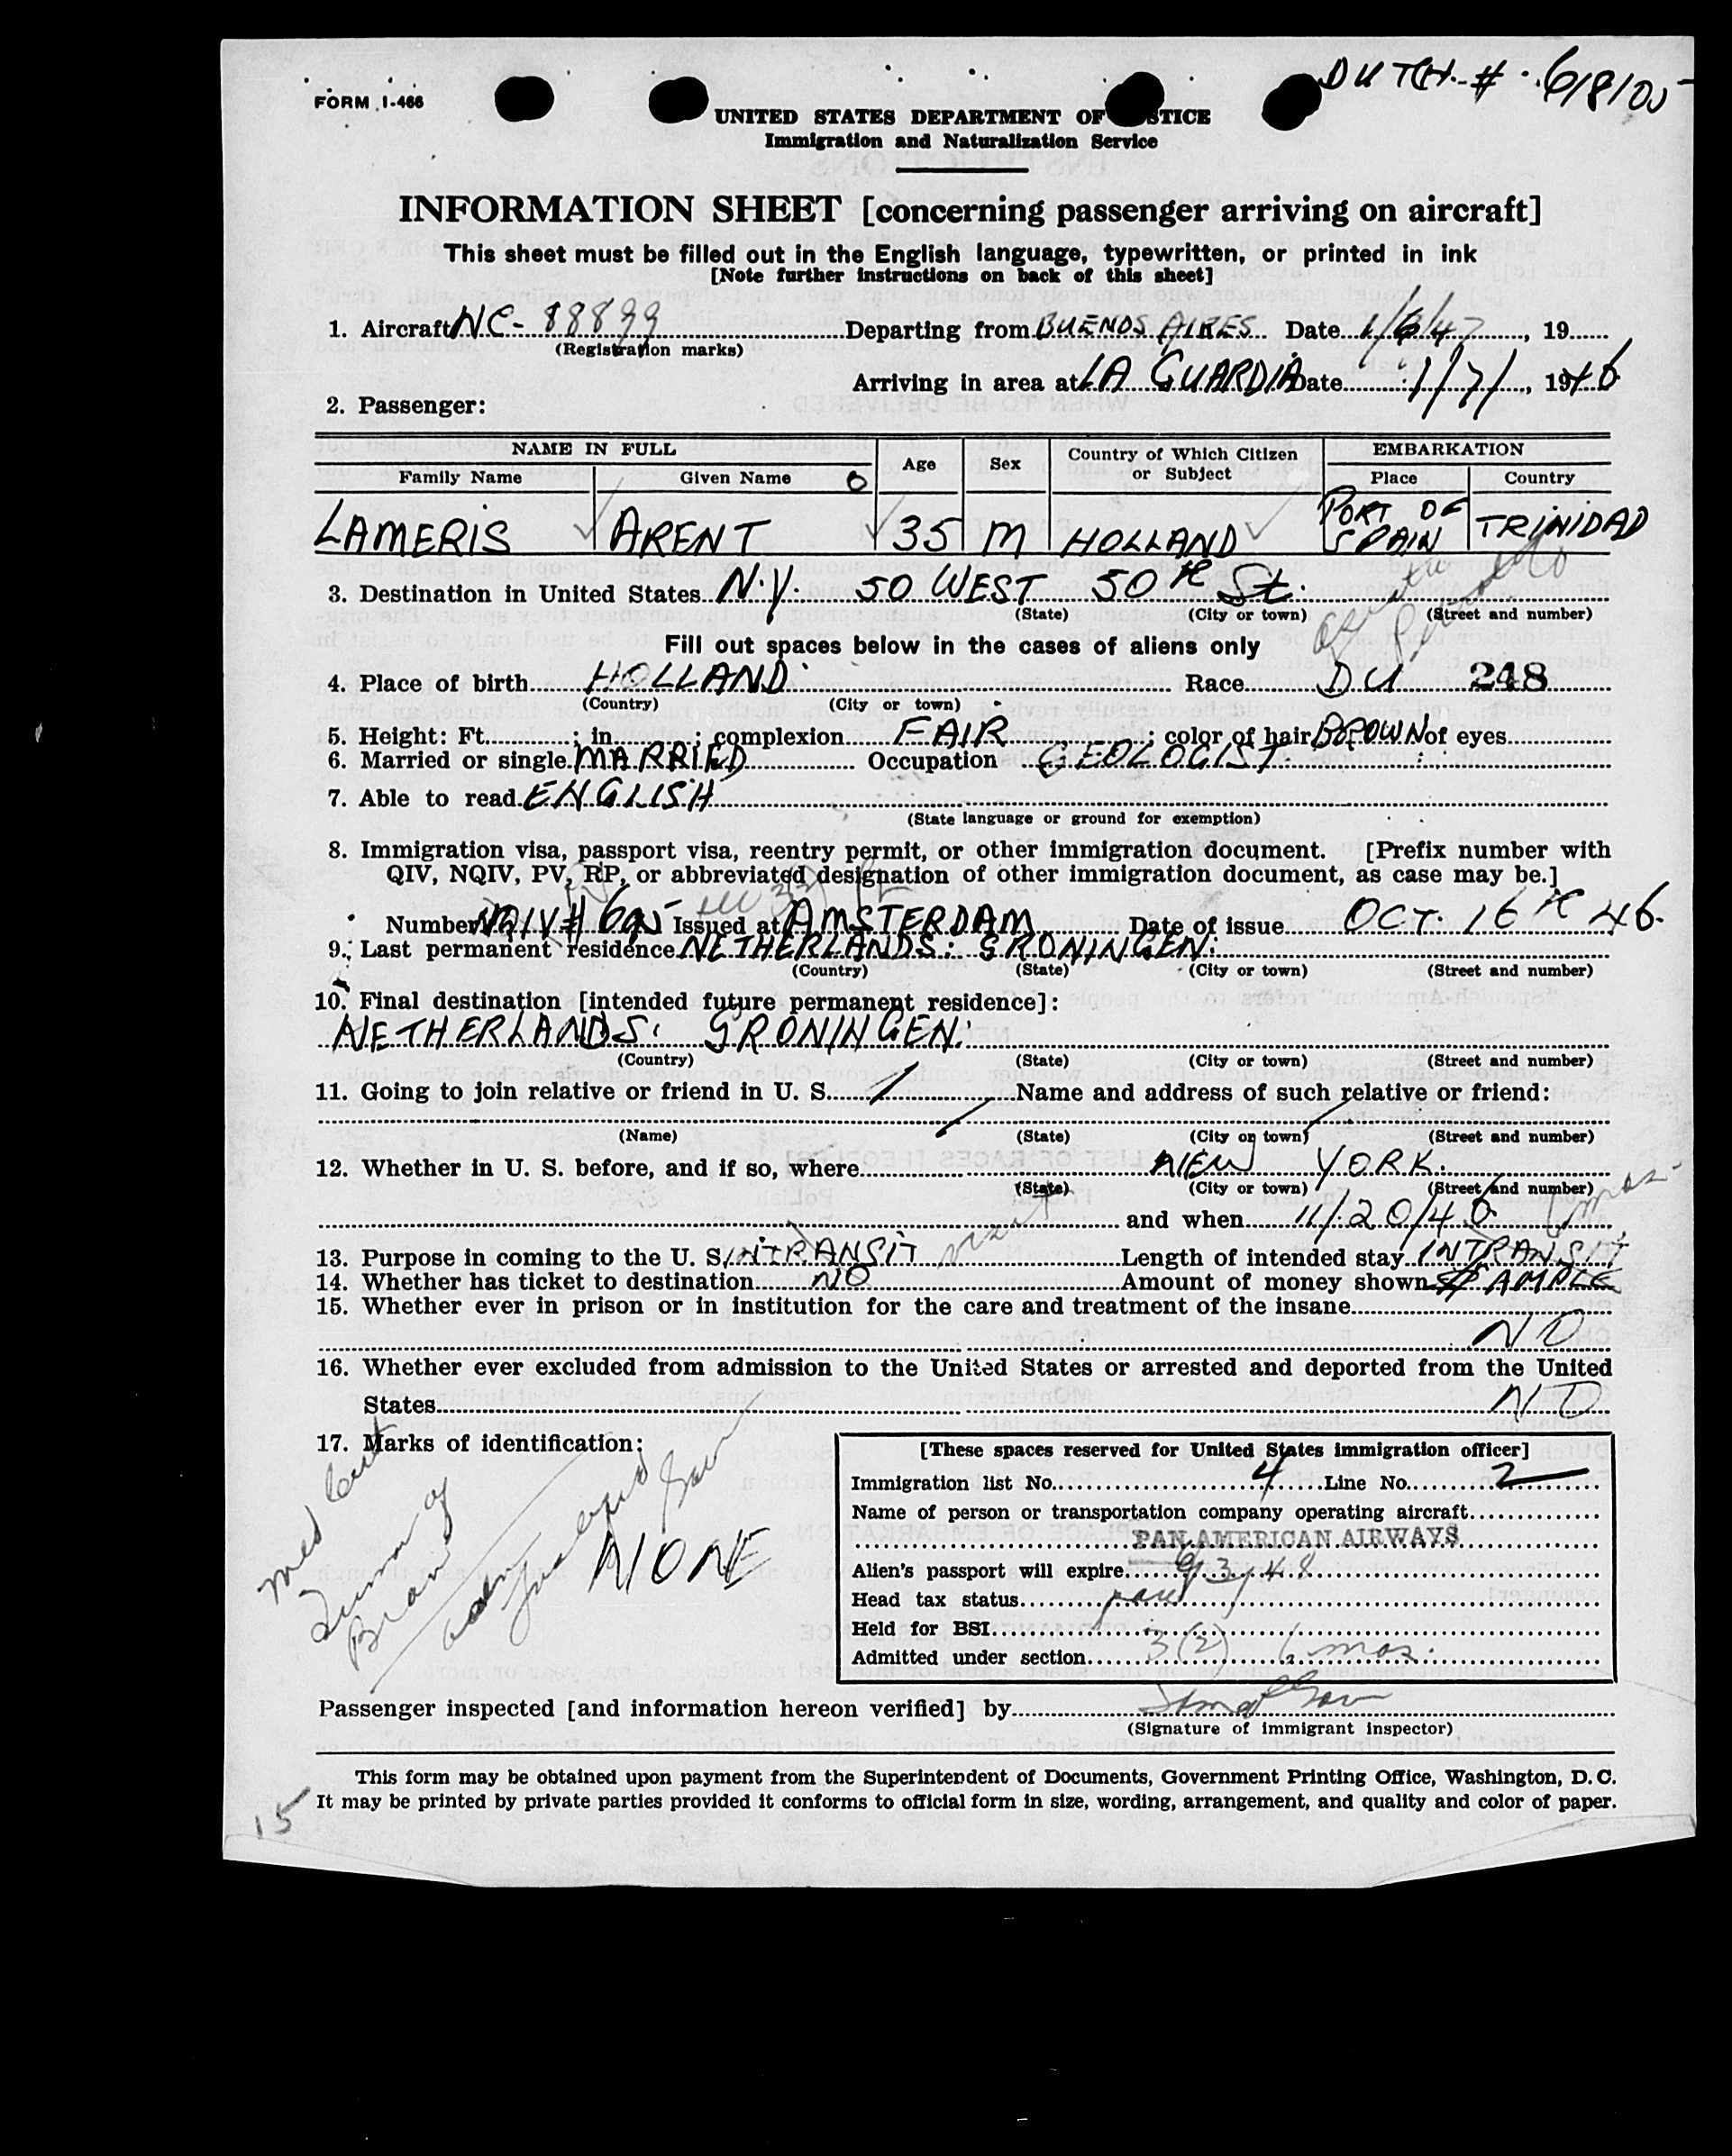 DUTCH #
FORM I-466
UNITED STATES DEPARTMENT OF STICE
Immigration and Naturalization Service
INFORMATION SHEET [concerning passenger arriving on aircraft]
This sheet must be filled out in the English language, typewritten, or printed in ink
[Note further instructions on back of this sheet]
1. Aircraft NC-88899 Departing from BUENOS AIRES Date 1/6/47, 19
(Registration marks)
Arriving in area at LA GUARDIA Date 1/7/, 1946
2. Passenger:
NAME IN FULL Age Sex Country of Which Citizen or Subject EMBARKATION
Family Name Given Name Place Country
LAMERIS ARENT 35 M HOLLAND PORT OF SPAIN TRINIDAD
3. Destination in United States N.Y. 50 WEST 50 St.
(State) (City or town) (Street and number)
Fill out spaces below in the cases of aliens only
4. Place of birth HOLLAND Race DU 248
(Country) (City or town)
5. Height: Ft. ; in. ; complexion FAIR ; color of hair BROWN of eyes
6. Married or single MARRIED Occupation GEOLOGIST.
7. Able to read ENGLISH
(State language or ground for exemption)
8. Immigration visa, passport visa, reentry permit, or other immigration document. [Prefix number with
QIV, NQIV, PV, RP, or abbreviated designation of other immigration document, as case may be.]
Number Issued at AMSTERDAM Date of issue OCT. 16 46.
9. Last permanent residence NETHERLANDS: GRONINGEN:
(Country) (State) (City or town) (Street and number)
10. Final destination [intended future permanent residence]:
NETHERLANDS: GRONINGEN:
(Country) (State) (City or town) (Street and number)
11. Going to join relative or friend in U. S. / Name and address of such relative or friend:
(Name) (State) (City or town) (Street and number)
12. Whether in U. S. before, and if so, where NEW YORK.
(State) (City or town) (Street and number)
and when 11/20/46
13. Purpose in coming to the U. S. INTRANSIT visit Length of intended stay INTRANSIT
14. Whether has ticket to destination NO Amount of money shown $ AMPLE
15. Whether ever in prison or in institution for the care and treatment of the insane
NO
16. Whether ever excluded from admission to the United States or arrested and deported from the United
States NO
17. Marks of identification:
NONE
[These spaces reserved for United States immigration officer]
Immigration list No. 4 Line No. 2
Name of person or transportation company operating aircraft
PAN AMERICAN AIRWAYS
Alien's passport will expire
Head tax status
Held for BSI
Admitted under section 3(2) 6 mos.
Passenger inspected [and information hereon verified] by
(Signature of immigrant inspector)
This form may be obtained upon payment from the Superintendent of Documents, Government Printing Office, Washington, D. C.
It may be printed by private parties provided it conforms to official form in size, wording, arrangement, and quality and color of paper.
15